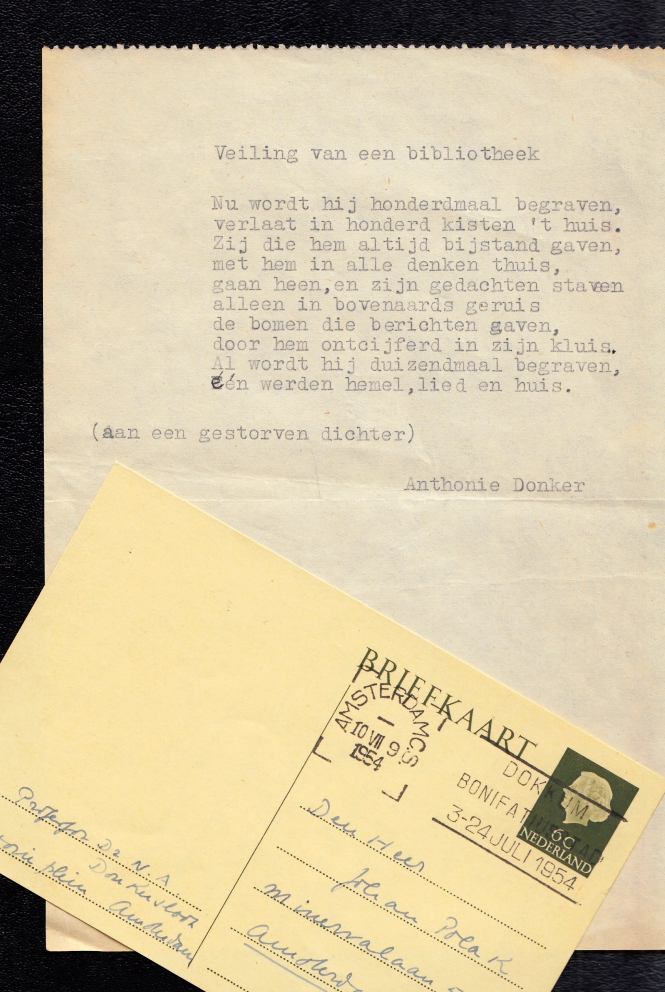 Veiling van een bibliotheek
Nu wordt hij honderdmaal begraven,
verlaat in honderd kisten 't huis.
Zij die hem altijd bijstand gaven,
met hem in alle denken thuis,
gaan heen,en zijn gedachten staven
alleen in bovenaards geruis
de bomen die berichten gaven,
door hem ontcijferd in zijn kluis.
Al wordt hij duizendmaal begraven,
één werden hemel,lied en huis.
(aan een gestorven dichter)
Anthonie Donker
BRIEFKAART
AMSTERDAM C.S
10 VII 9
1954
DOKKUM
BONIFATIUSSTAD
3-24 JULI 1954
6c
NEDERLAND
Professor Dr. N. A.
Donkersloot
Hein Amsterdam
Den Heer
Johan Polak
Minervalaan